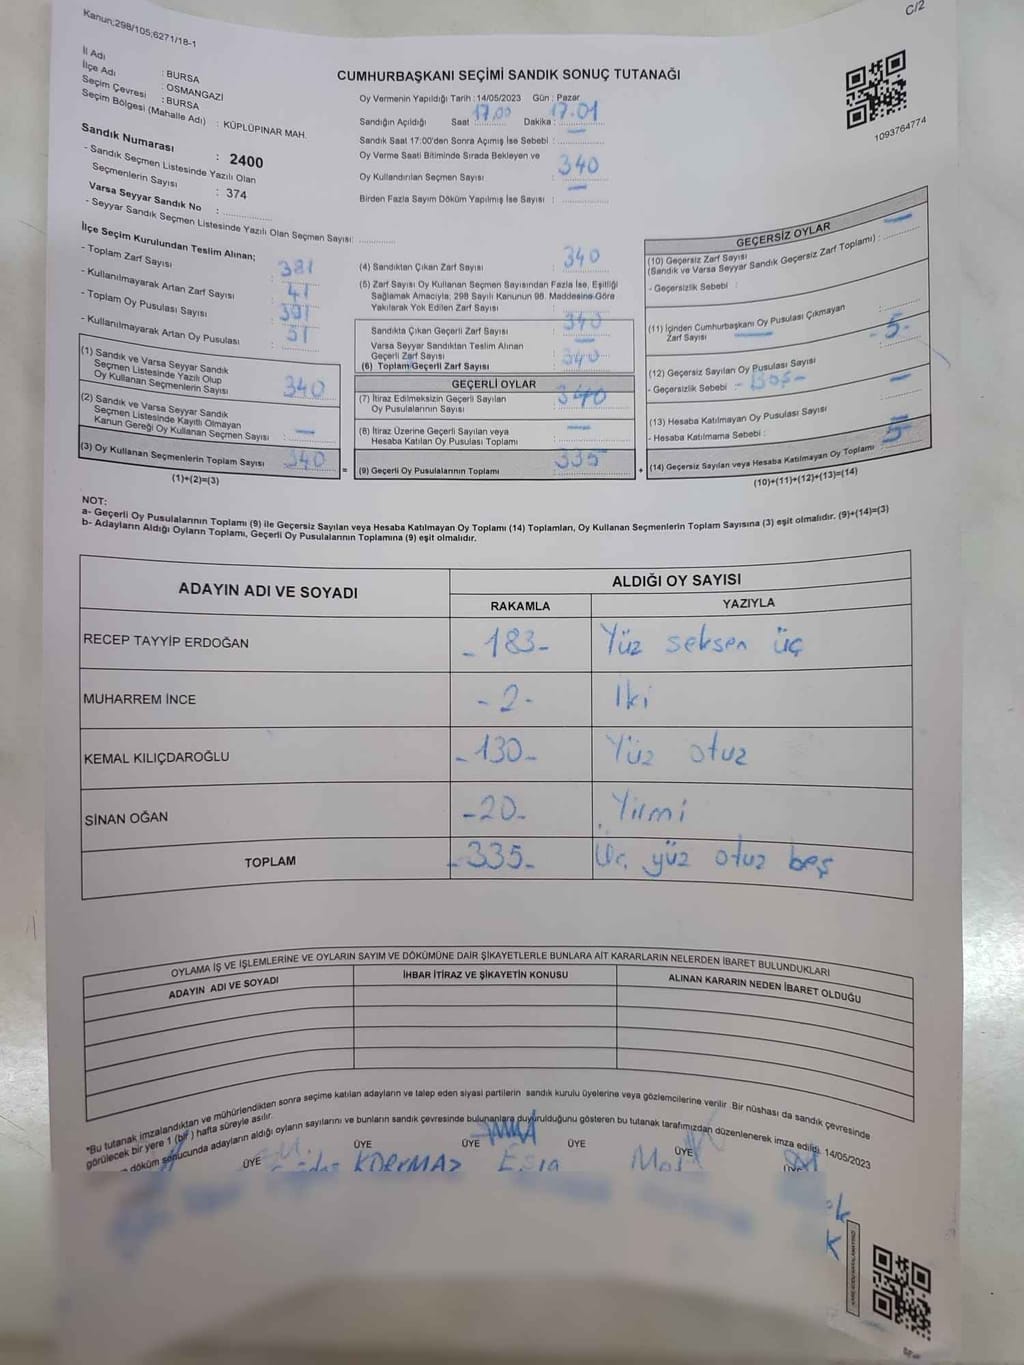 Kanun;298/105;6271/18-1
C/2
İl Adı : BURSA
İlçe Adı : OSMANGAZİ
Seçim Çevresi : BURSA
Seçim Bölgesi (Mahalle Adı) : KÜPLÜPINAR MAH.
Sandık Numarası : 2400
- Sandık Seçmen Listesinde Yazılı Olan
Seçmenlerin Sayısı : 374
Varsa Seyyar Sandık No :
- Seyyar Sandık Seçmen Listesinde Yazılı Olan Seçmen Sayısı:
CUMHURBAŞKANI SEÇİMİ SANDIK SONUÇ TUTANAĞI
Oy Vermenin Yapıldığı Tarih : 14/05/2023 Gün : Pazar
Sandığın Açıldığı Saat 17.00 Dakika : 17.01
Sandık Saat 17:00'den Sonra Açımış İse Sebebi : -
Oy Verme Saati Bitiminde Sırada Bekleyen ve
Oy Kullandırılan Seçmen Sayısı : 340
Birden Fazla Sayım Döküm Yapılmış İse Sayısı : -
1093764774
İlçe Seçim Kurulundan Teslim Alınan;
- Toplam Zarf Sayısı : 381
- Kullanılmayarak Artan Zarf Sayısı : 41
- Toplam Oy Pusulası Sayısı : 391
- Kullanılmayarak Artan Oy Pusulası : 51
(1) Sandık ve Varsa Seyyar Sandık
Seçmen Listesinde Yazılı Olup
Oy Kullanan Seçmenlerin Sayısı : 340
(2) Sandık ve Varsa Seyyar Sandık
Seçmen Listesinde Kayıtlı Olmayan
Kanun Gereği Oy Kullanan Seçmen Sayısı : -
(3) Oy Kullanan Seçmenlerin Toplam Sayısı : 340
(1)+(2)=(3)
(4) Sandıktan Çıkan Zarf Sayısı : 340
(5) Zarf Sayısı Oy Kullanan Seçmen Sayısından Fazla İse, Eşitliği
Sağlamak Amacıyla, 298 Sayılı Kanunun 98. Maddesine Göre
Yakılarak Yok Edilen Zarf Sayısı : -
Sandıkta Çıkan Geçerli Zarf Sayısı : 340
Varsa Seyyar Sandıktan Teslim Alınan
Geçerli Zarf Sayısı : -
(6) Toplam Geçerli Zarf Sayısı : 340
GEÇERLİ OYLAR
(7) İtiraz Edilmeksizin Geçerli Sayılan
Oy Pusulalarının Sayısı : 340
(8) İtiraz Üzerine Geçerli Sayılan veya
Hesaba Katılan Oy Pusulası Toplamı : -
= (9) Geçerli Oy Pusulalarının Toplamı : 335 +
GEÇERSİZ OYLAR
(10) Geçersiz Zarf Sayısı
(Sandık ve Varsa Seyyar Sandık Geçersiz Zarf Toplamı) : -
- Geçersizlik Sebebi :
(11) İçinden Cumhurbaşkanı Oy Pusulası Çıkmayan
Zarf Sayısı : -
(12) Geçersiz Sayılan Oy Pusulası Sayısı : -5-
- Geçersizlik Sebebi - BOŞ -
(13) Hesaba Katılmayan Oy Pusulası Sayısı : -
- Hesaba Katılmama Sebebi :
(14) Geçersiz Sayılan veya Hesaba Katılmayan Oy Toplamı : 5
(10)+(11)+(12)+(13)=(14)
NOT:
a- Geçerli Oy Pusulalarının Toplamı (9) ile Geçersiz Sayılan veya Hesaba Katılmayan Oy Toplamı (14) Toplamları, Oy Kullanan Seçmenlerin Toplam Sayısına (3) eşit olmalıdır. (9)+(14)=(3)
b- Adayların Aldığı Oyların Toplamı, Geçerli Oy Pusulalarının Toplamına (9) eşit olmalıdır.
ADAYIN ADI VE SOYADI
ALDIĞI OY SAYISI
RAKAMLA YAZIYLA
RECEP TAYYİP ERDOĞAN -183- Yüz seksen üç
MUHARREM İNCE -2- İki
KEMAL KILIÇDAROĞLU -130- Yüz otuz
SİNAN OĞAN -20- Yirmi
TOPLAM -335- Üç yüz otuz beş
OYLAMA İŞ VE İŞLEMLERİNE VE OYLARIN SAYIM VE DÖKÜMÜNE DAİR ŞİKAYETLERLE BUNLARA AİT KARARLARIN NELERDEN İBARET BULUNDUKLARI
ADAYIN ADI VE SOYADI İHBAR İTİRAZ VE ŞİKAYETİN KONUSU ALINAN KARARIN NEDEN İBARET OLDUĞU
*Bu tutanak imzalandıktan ve mühürlendikten sonra seçime katılan adayların ve talep eden siyasi partilerin sandık kurulu üyelerine veya gözlemcilerine verilir. Bir nüshası da sandık çevresinde
görülecek bir yere 1 (bir) hafta süreyle asılır.
döküm sonucunda adayların aldığı oyların sayılarını ve bunların sandık çevresinde bulunanlara duyurulduğunu gösteren bu tutanak tarafımızdan düzenlenerek imza edildi. 14/05/2023
ÜYE ÜYE ÜYE ÜYE ÜYE
KORKMAZ Esra